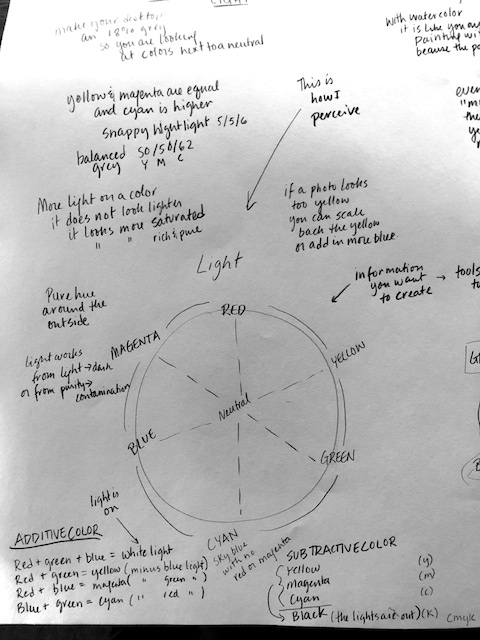 LIGHT
make your desktop
an 18% grey
so you are looking
at colors next to a neutral
with watercolor
it is like you a
Painting wi
because the pa
yellow & magenta are equal
and cyan is higher
snappy highlight 5/5/6
balanced 50/50/62
grey Y M C
This is
how I
perceive
even
"m
the
ye
More light on a color
it does not look lighter
it looks more saturated
" " rich & pure
if a photo looks
too yellow
you can scale
back the yellow
or add in more blue
Light
Information
you want → tools
to create
Pure hue
around the
outside
RED
Light works
from light → dark
or from purity →
contamination
MAGENTA
YELLOW
Neutral
BLUE
GREEN
light is
on
CYAN
sky blue
with no
red or magenta
ADDITIVE COLOR
Red + green + blue = white light
Red + green = yellow (minus blue light)
Red + blue = magenta ( " green " )
Blue + green = cyan ( " red " )
SUBTRACTIVE COLOR
Yellow (y)
magenta (m)
Cyan (c)
Black (the lights are out) (K) cmyk